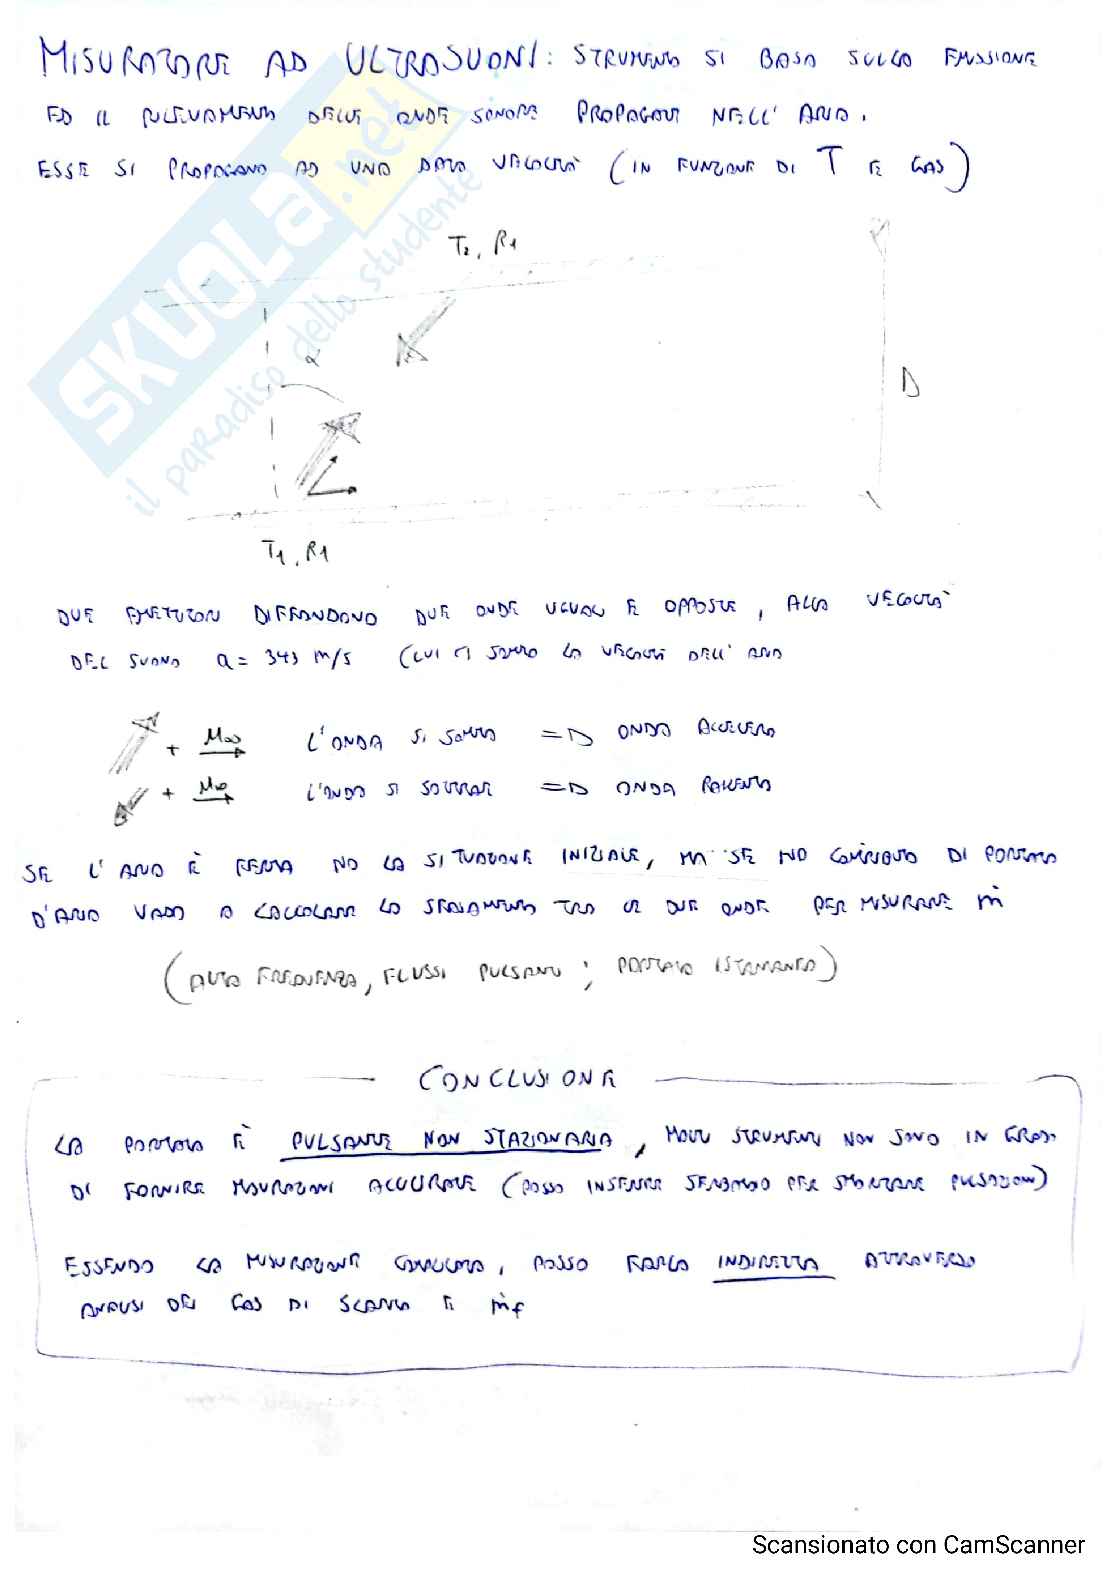 MISURATORE AD ULTRASUONI: STRUMENTO SI BASA SULLA EMISSIONE
ED IL RILEVAMENTO DELLE ONDE SONORE PROPAGATE NELL'ARIA.
ESSE SI PROPAGANO AD UNA DATA VELOCITÀ (IN FUNZIONE DI T E GAS)
T2, R1
α
D
T1, R1
DUE EMETTITORI DIFFONDONO DUE ONDE UGUALI E OPPOSTE, ALLA VELOCITÀ
DEL SUONO a = 343 m/s (LUI CI SOMMA LA VELOCITÀ DELL'ARIA
+ M∞ L'ONDA SI SOMMA => ONDA ACCELERA
+ M∞ L'ONDA SI SOTTRAE => ONDA RALLENTA
SE L'ARIA È FERMA HO LA SITUAZIONE INIZIALE, MA SE HO CONTRIBUTO DI PORTATA
D'ARIA VADO A CALCOLARE LO SFASAMENTO TRA LE DUE ONDE PER MISURARE ṁ
(ALTA FREQUENZA, FLUSSI PULSANTI; PORTATA ISTANTANEA)
CONCLUSIONE
LA PORTATA È PULSANTE NON STAZIONARIA, MOLTI STRUMENTI NON SONO IN GRADO
DI FORNIRE MISURAZIONI ACCURATE (POSSO INSERIRE SERBATOIO PER SMORZARE PULSAZIONI)
ESSENDO LA MISURAZIONE COMPLICATA, POSSO FARLA INDIRETTA ATTRAVERSO
ANALISI DEI GAS DI SCARICO E ṁf
SKUOLA.net
il paradiso dello studente
Scansionato con CamScanner